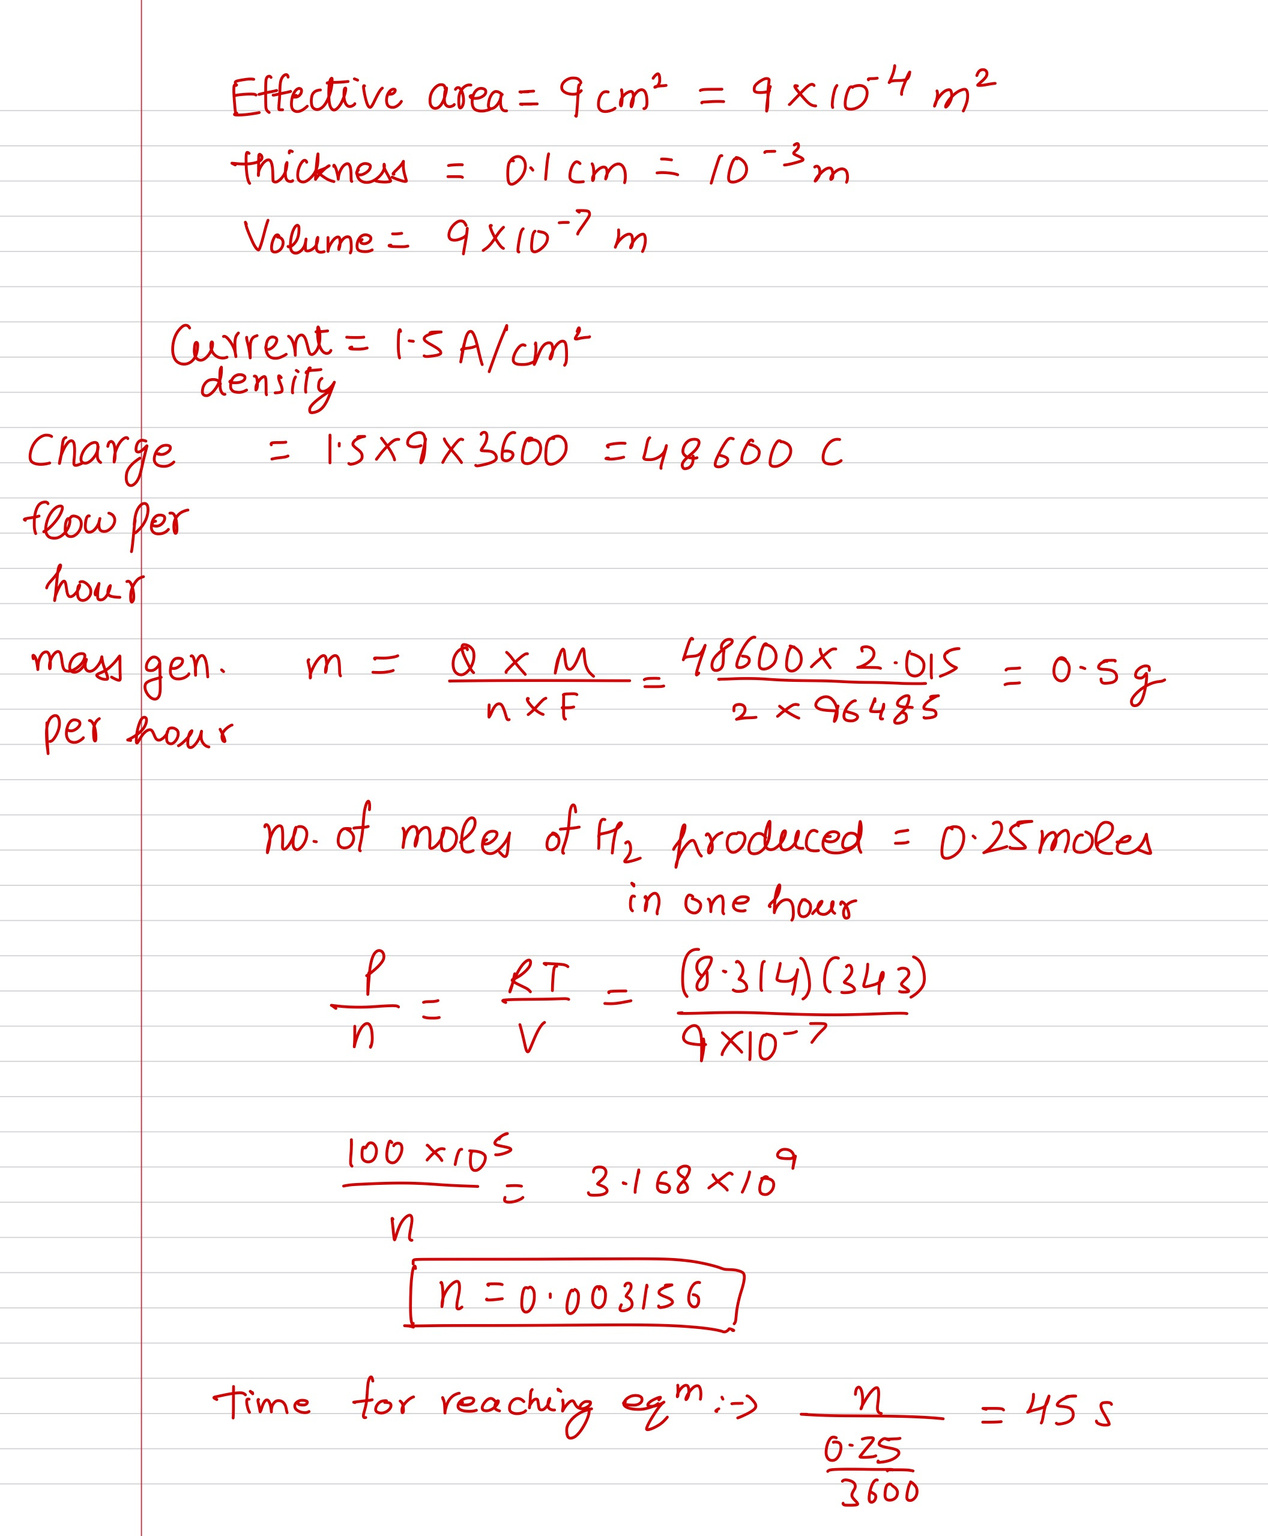 Effective area = 9 cm² = 9 × 10⁻⁴ m²
thickness = 0.1 cm = 10⁻³ m
Volume = 9 × 10⁻⁷ m
Current density = 1.5 A/cm²
Charge flow per hour = 1.5 × 9 × 3600 = 48600 C
mass gen. per hour m = (Q × M)/(n × F) = (48600 × 2.015)/(2 × 96485) = 0.5 g
no. of moles of H₂ produced = 0.25 moles
in one hour
P/n = RT/V = (8.314)(343)/(9 × 10⁻⁷)
(100 × 10⁵)/n = 3.168 × 10⁹
n = 0.003156
Time for reaching eqᵐ :-> n/(0.25/3600) = 45 s